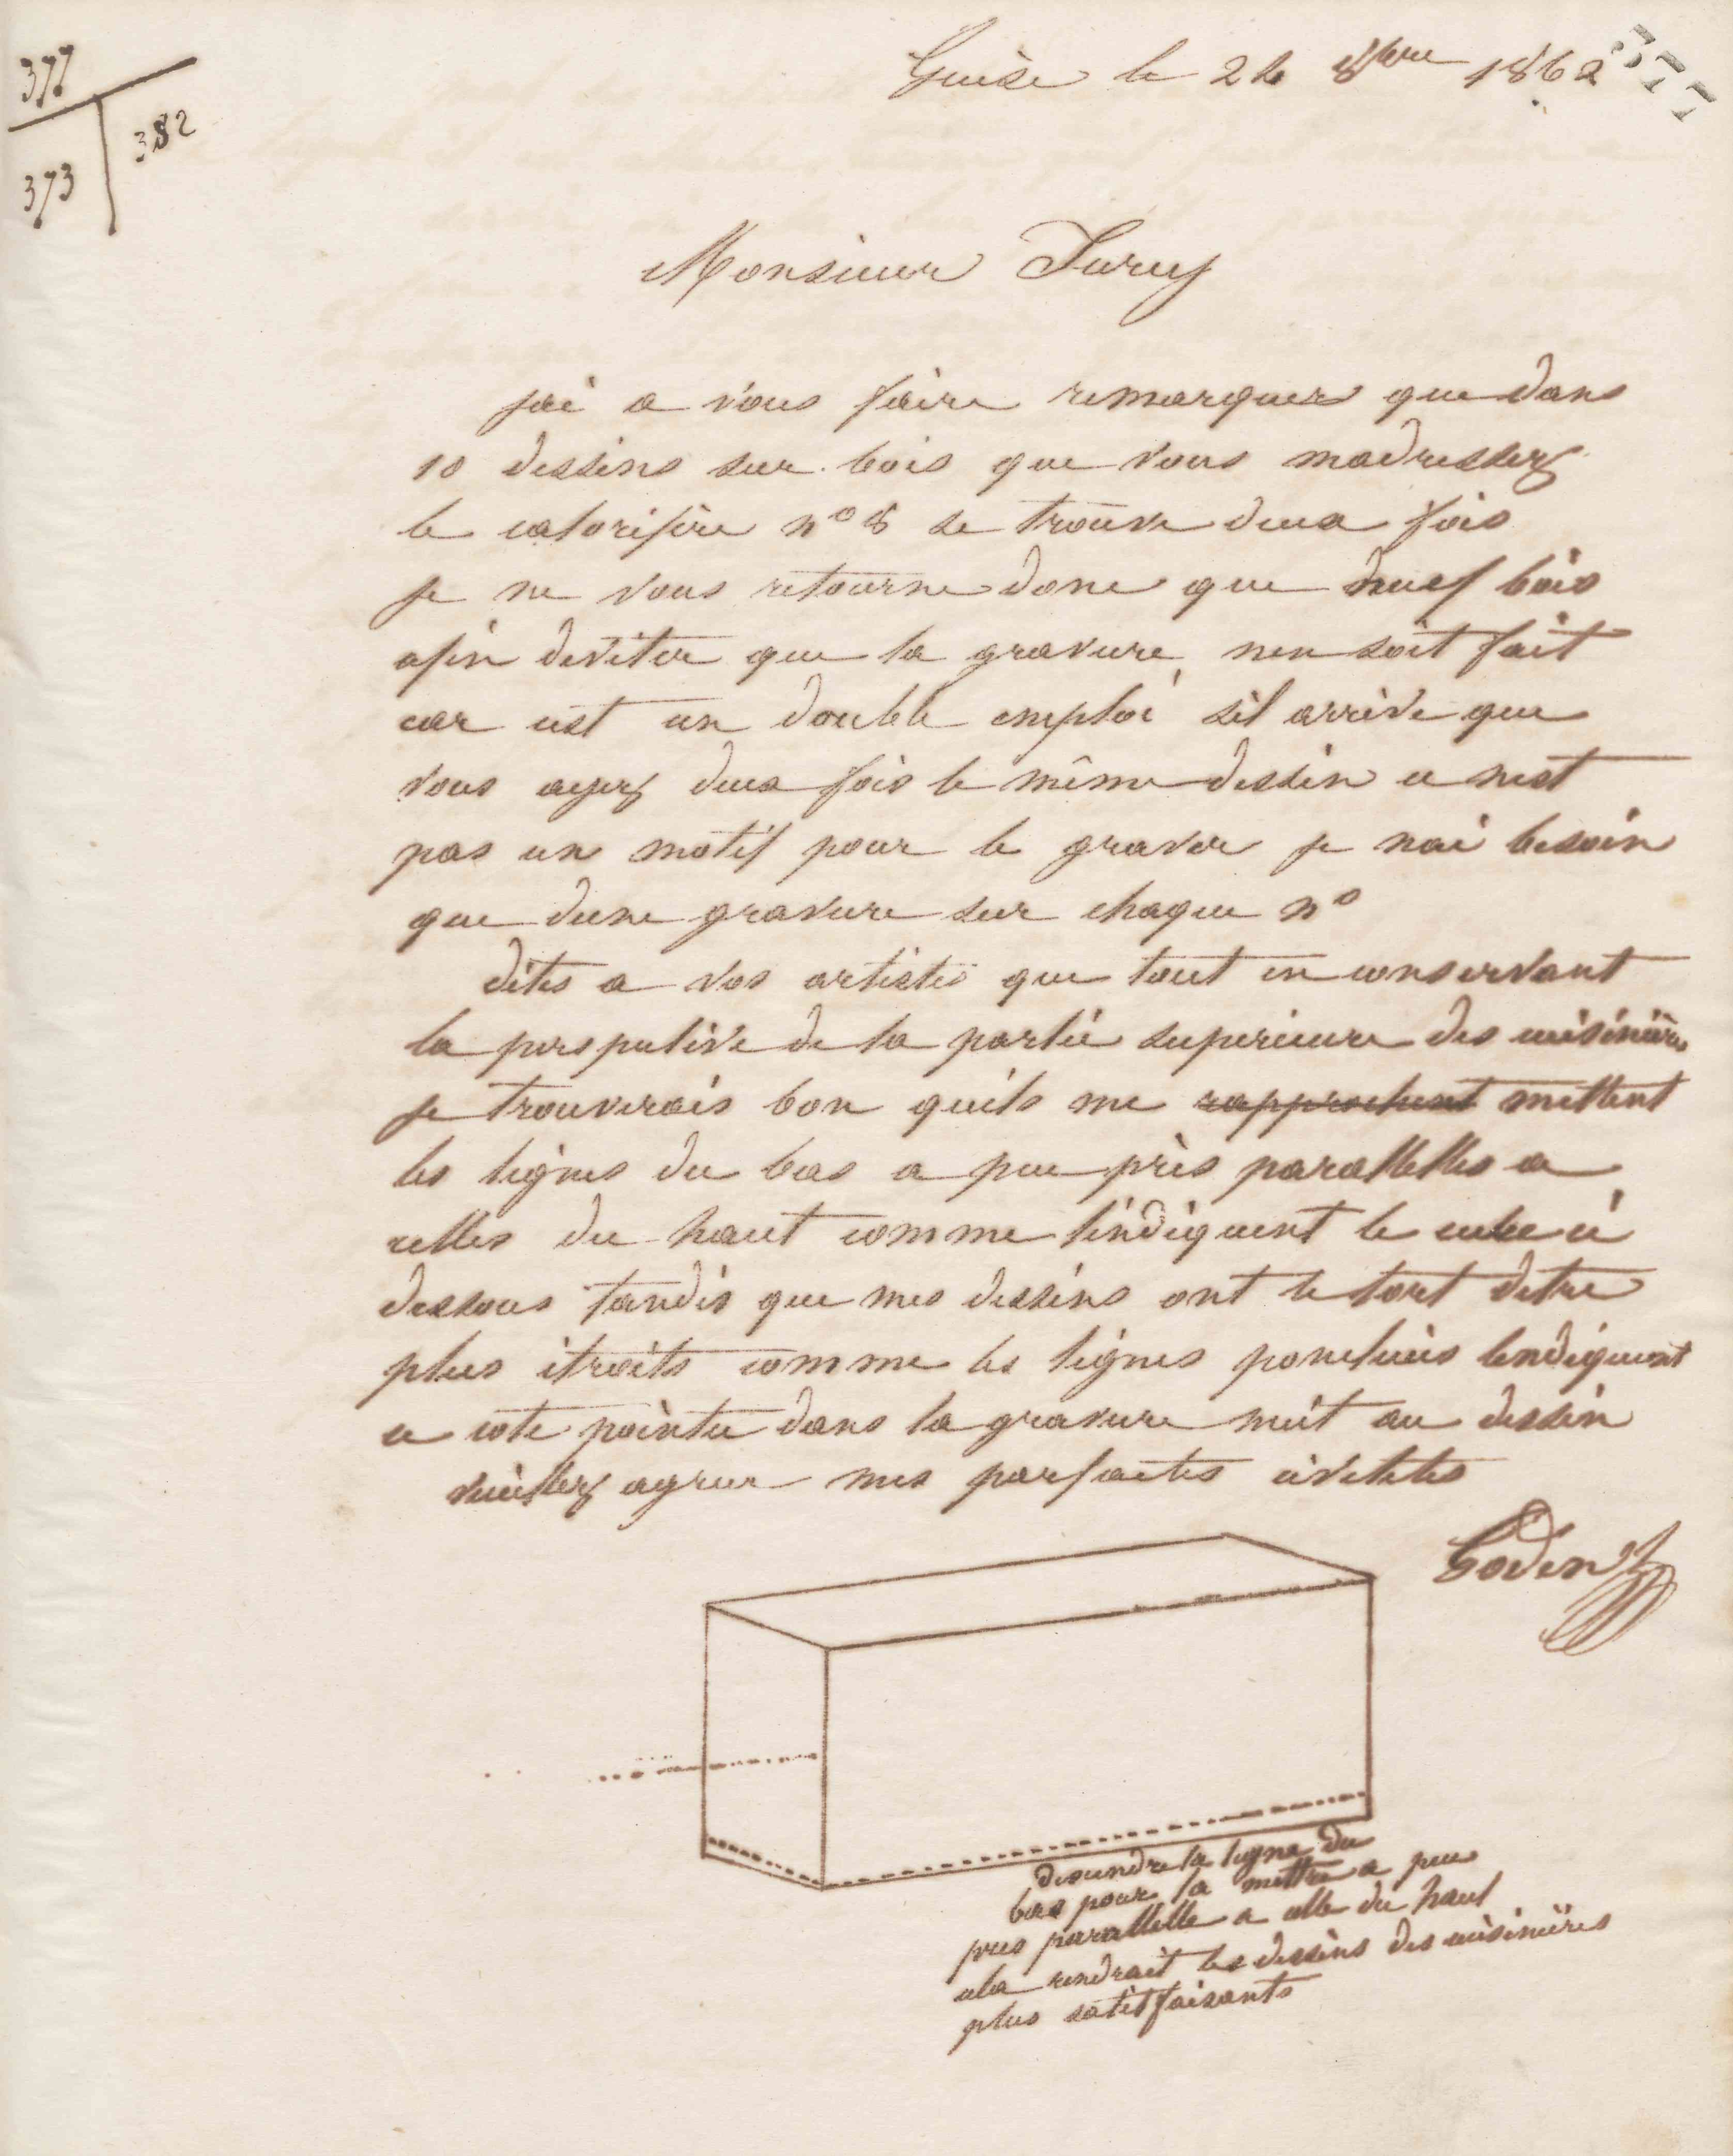 377
373
382
Guise le 24 8bre 1862
377
Monsieur Jury
jai a vous faire remarquer que dans
10 dessins sur bois que vous madressez
le calorifère n° 8 se trouve deux fois
je ne vous retourne donc que neuf bois
afin deviter que la gravure nen soit fait
car cest un double emploi sil arrive que
vous ayez deux fois le même dessin ce nest
pas un motif pour le graver je nai besoin
que dune gravure sur chaque n°
dites a vos artistes que tout en conservant
la perspective de la partie superieure des cuisinières
je trouverais bon quils me rapprochent mettent
les lignes du bas a peu près parallelles a
celles du haut comme lindiquent le cube ci
dessous tandis que mes dessins ont le tort detre
plus étroits comme les lignes ponctuées lindiquent
ce coté pointu dans la gravure nuit au dessin
veuillez agreer mes parfaites civilités
Godin
descendre la ligne du
bas pour la mettre a peu
pres parallelle a celle du haut
cela rendrait les dessins des cuisinières
plus satisfaisants